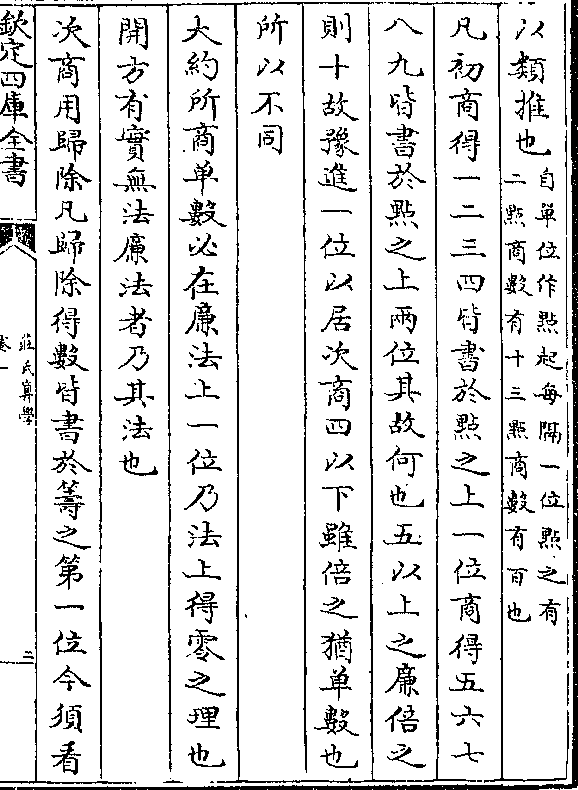 以類推也自單位作點起每隔一位點之有
二點商數有十三點商數有百也
凡初商得一二三四皆書於點之上一位商得五六七
八九皆書於點之上兩位其故何也五以上之廉倍之
則十故豫進一位以居次商四以下雖倍之猶單數也
所以不同
大約所商单數必在廉法上一位乃法上得零之理也
開方有實無法廉法者乃其法也
次商用歸除凡歸除得數皆書於籌之第一位今須看
欽定四庫全書
莊氏算學
卷一
二